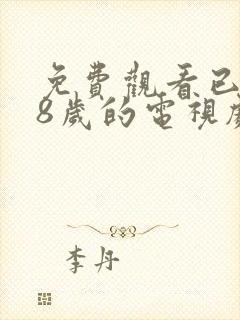 免費觀看已
8歲的電視劇
李丹